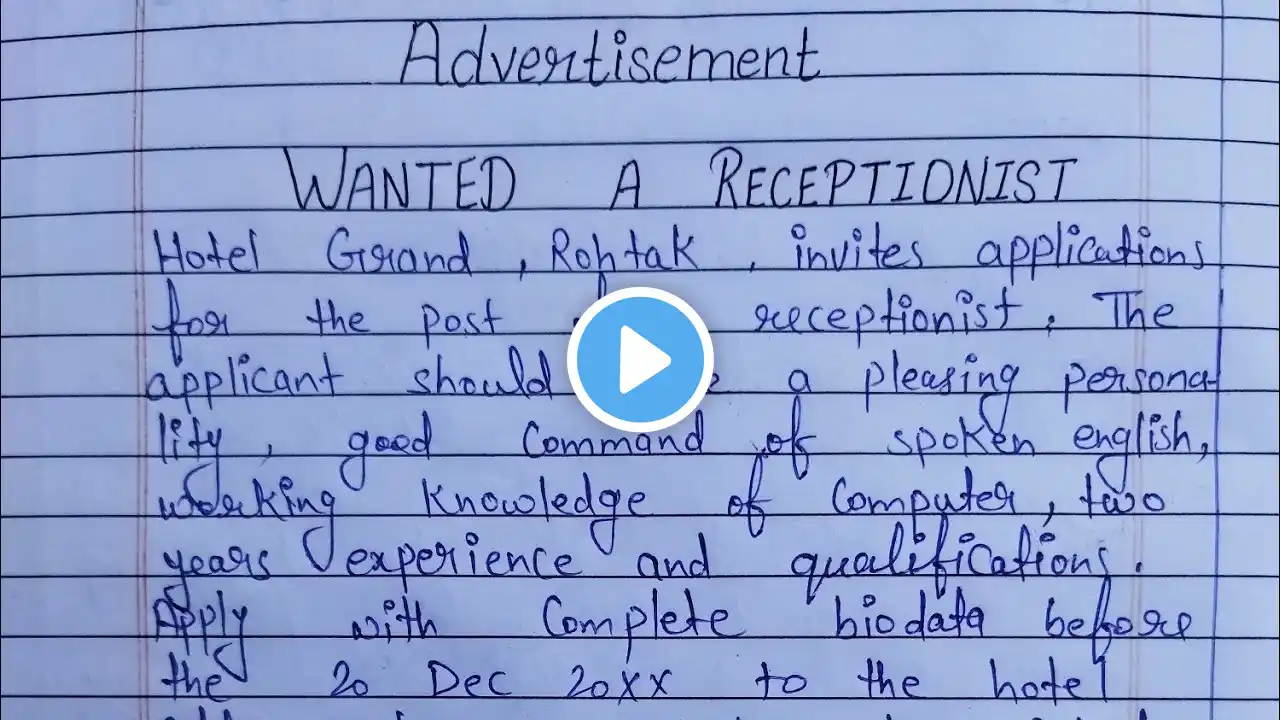 Advertisement
WANTED A RECEPTIONIST
Hotel Grand, Rohtak, invites applications
for the post receptionist. The
applicant should a pleasing persona-
lity, good command of spoken english,
working knowledge of computer, two
years experience and qualifications.
Apply with complete biodata before
the 20 Dec 20xx to the hotel